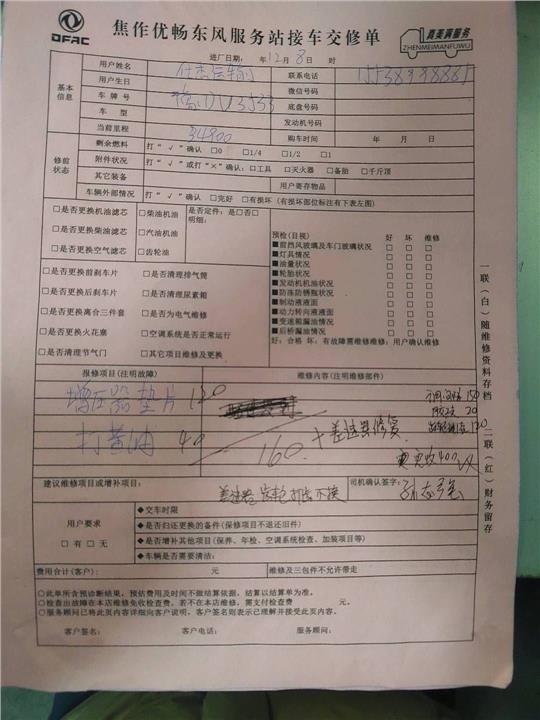 DFAC
焦作优畅东风服务站接车交修单
真美满服务
ZHENMEIMANFUWU
进厂日期： 年12月8日 时
基本信息
用户姓名 联系电话
用户生日 微信号码
车牌号 底盘号码
车型 发动机号码
当前里程 34800 购车时间 年 月 日
修前状态
剩余燃料 打“√”确认 □0 □1/4 □1/2 □1
附件状况 打“√”或打“×”确认：□工具 □灭火器 □备胎 □千斤顶
其它装备 用户寄存物品
车辆外部情况 打“√”确认 □完好 □有损坏（有损坏部位标注有下表左图）
□是否更换机油滤芯 □柴油机油 是否定件：是□否□
明细：
□是否更换柴油滤芯 □汽油机油
□是否更换空气滤芯 □齿轮油
□是否更换前刹车片 □是否清理排气筒
□是否更换后刹车片 □是否清理尿素箱
□是否更换离合三件套 □是否为电气维修
□是否更换火花塞 □空调系统是否正常运行
□是否清理节气门 □其它项目维修及更换
预检(目视) 好 坏 维修
■前挡风玻璃及车门玻璃状况 □ □ □
■灯具情况 □ □ □
■油量状况 □ □ □
■轮胎状况 □ □ □
■发动机机油液面 □ □ □
■防冻防锈瓶状况 □ □ □
■制动液液面 □ □ □
■动力转向液液面 □ □ □
■变速箱漏油情况 □ □ □
■后桥漏油情况 □ □ □
好：合格 坏：有故障需维修维修：用户确认维修
报修项目(注明故障) 维修内容(注明维修部件)
增压器垫片 120
打黄油 40
160 + 差速器修复
150
胶 20
120
400
建议维修项目或增补项目：
差速器 齿轮打坏不换
司机确认签字：
用户要求
□有 □无
◆交车时限
◆是否归还更换的备件(保修项目不退还旧件)
◆是否增补其他项目(保养、年检、空调系统检查、加装项目等)
◆车辆是否需要清洁：
费用合计(客户)： 元 维修及三包件不允许带走
○此单所含预诊断结果，预估费用及时间不做结算依据，结算以结算单为准。
○检查出故障在本店维修免收检查费。若不在本店维修，需支付检查费 元。
○服务顾问已将此页内容详细向客户说明，客户签名则表示已理解并接受此页内容。
客户签名： 客户电话： 服务顾问：
一联（白）随维修资料存档 二联（红）财务留存